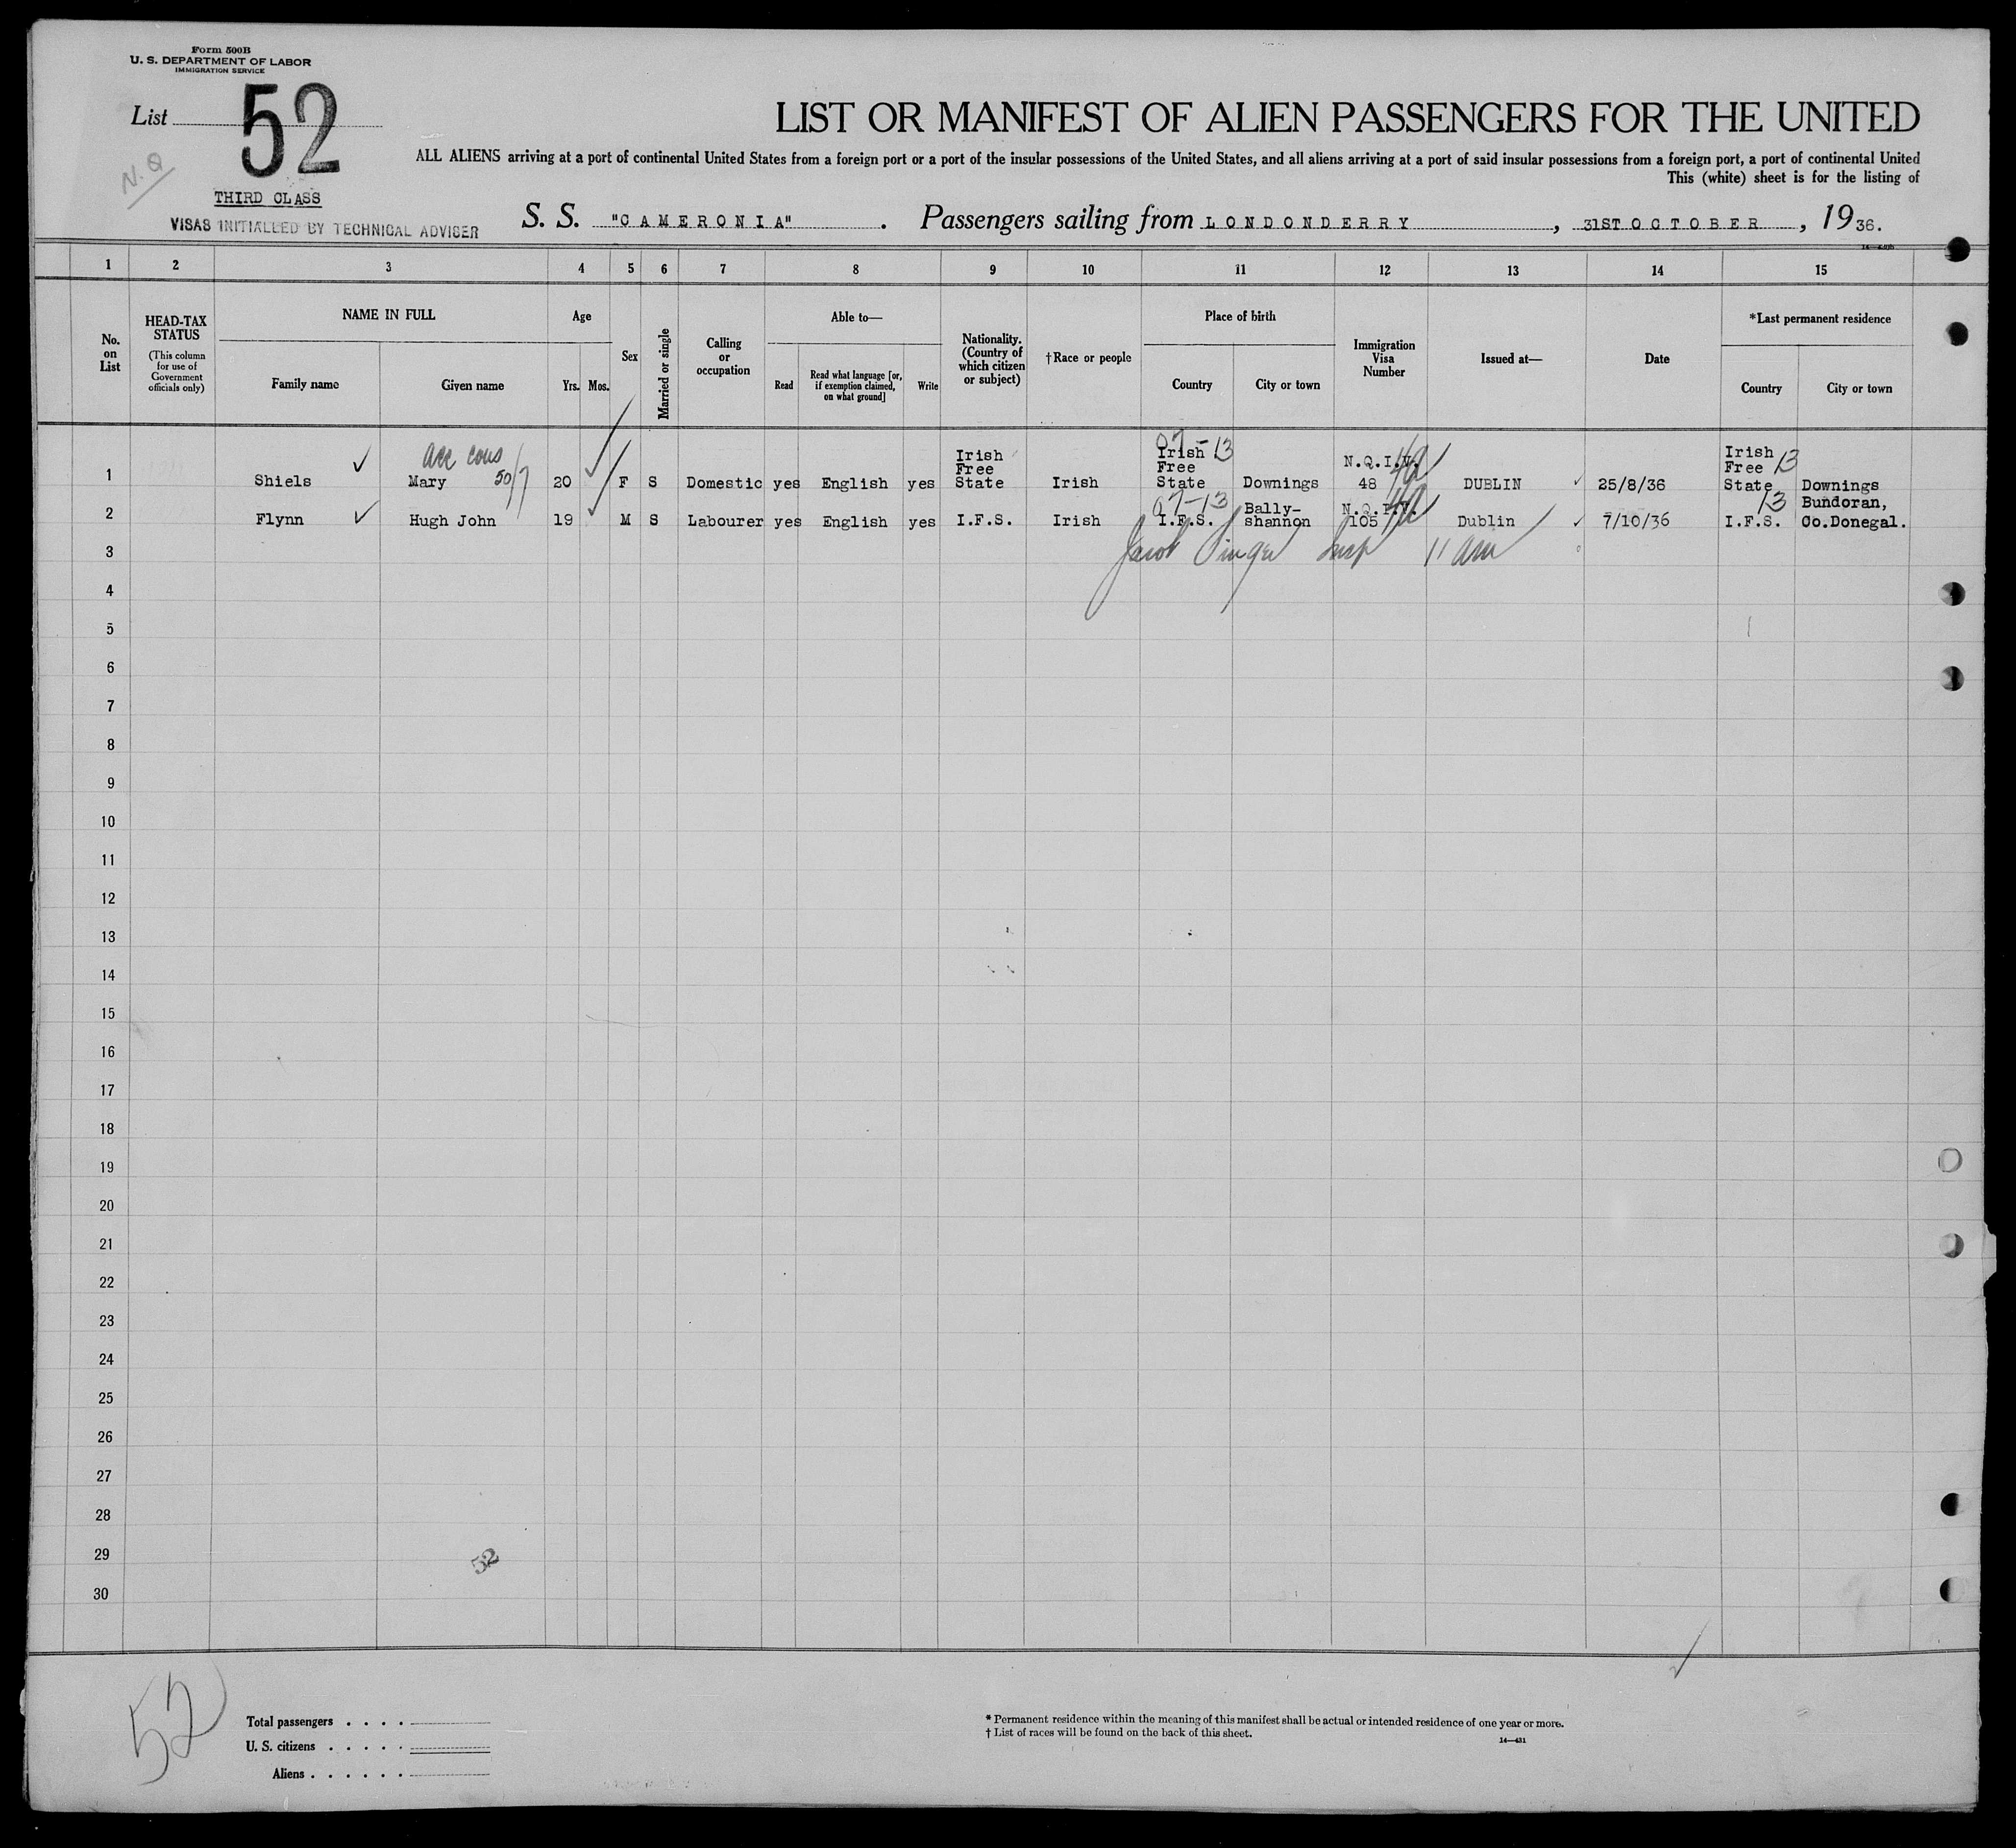 Form 500B
U. S. DEPARTMENT OF LABOR
IMMIGRATION SERVICE
List 52
N.Q
THIRD CLASS
VISAS INITIALLED BY TECHNICAL ADVISER
LIST OR MANIFEST OF ALIEN PASSENGERS FOR THE UNITED
ALL ALIENS arriving at a port of continental United States from a foreign port or a port of the insular possessions of the United States, and all aliens arriving at a port of said insular possessions from a foreign port, a port of continental United
This (white) sheet is for the listing of
S. S. "CAMERONIA". Passengers sailing from LONDONDERRY, 31ST OCTOBER, 1936.
1 2 3 4 5 6 7 8 9 10 11 12 13 14 15
No. on List
HEAD-TAX STATUS
(This column for use of Government officials only)
NAME IN FULL
Family name Given name
Age
Yrs. Mos.
Sex
Married or single
Calling or occupation
Able to—
Read
Read what language [or, if exemption claimed, on what ground]
Write
Nationality. (Country of which citizen or subject)
†Race or people
Place of birth
Country City or town
Immigration Visa Number
Issued at—
Date
*Last permanent residence
Country City or town
acc cous 50/7
07-13
13
1 Shiels Mary 20 F S Domestic yes English yes Irish Free State Irish Irish Free State Downings N.Q.I.V. 48 DUBLIN 25/8/36 Irish Free State Downings
07-13
13
2 Flynn Hugh John 19 M S Labourer yes English yes I.F.S. Irish I.F.S. Bally-shannon N.Q.I.V. 105 Dublin 7/10/36 I.F.S. Bundoran, Co.Donegal.
3 Insp 11 am
4
5
6
7
8
9
10
11
12
13
14
15
16
17
18
19
20
21
22
23
24
25
26
27
28
29 52
30
52
Total passengers . . . .
U. S. citizens . . . . .
Aliens . . . . . .
* Permanent residence within the meaning of this manifest shall be actual or intended residence of one year or more.
† List of races will be found on the back of this sheet.
14—431